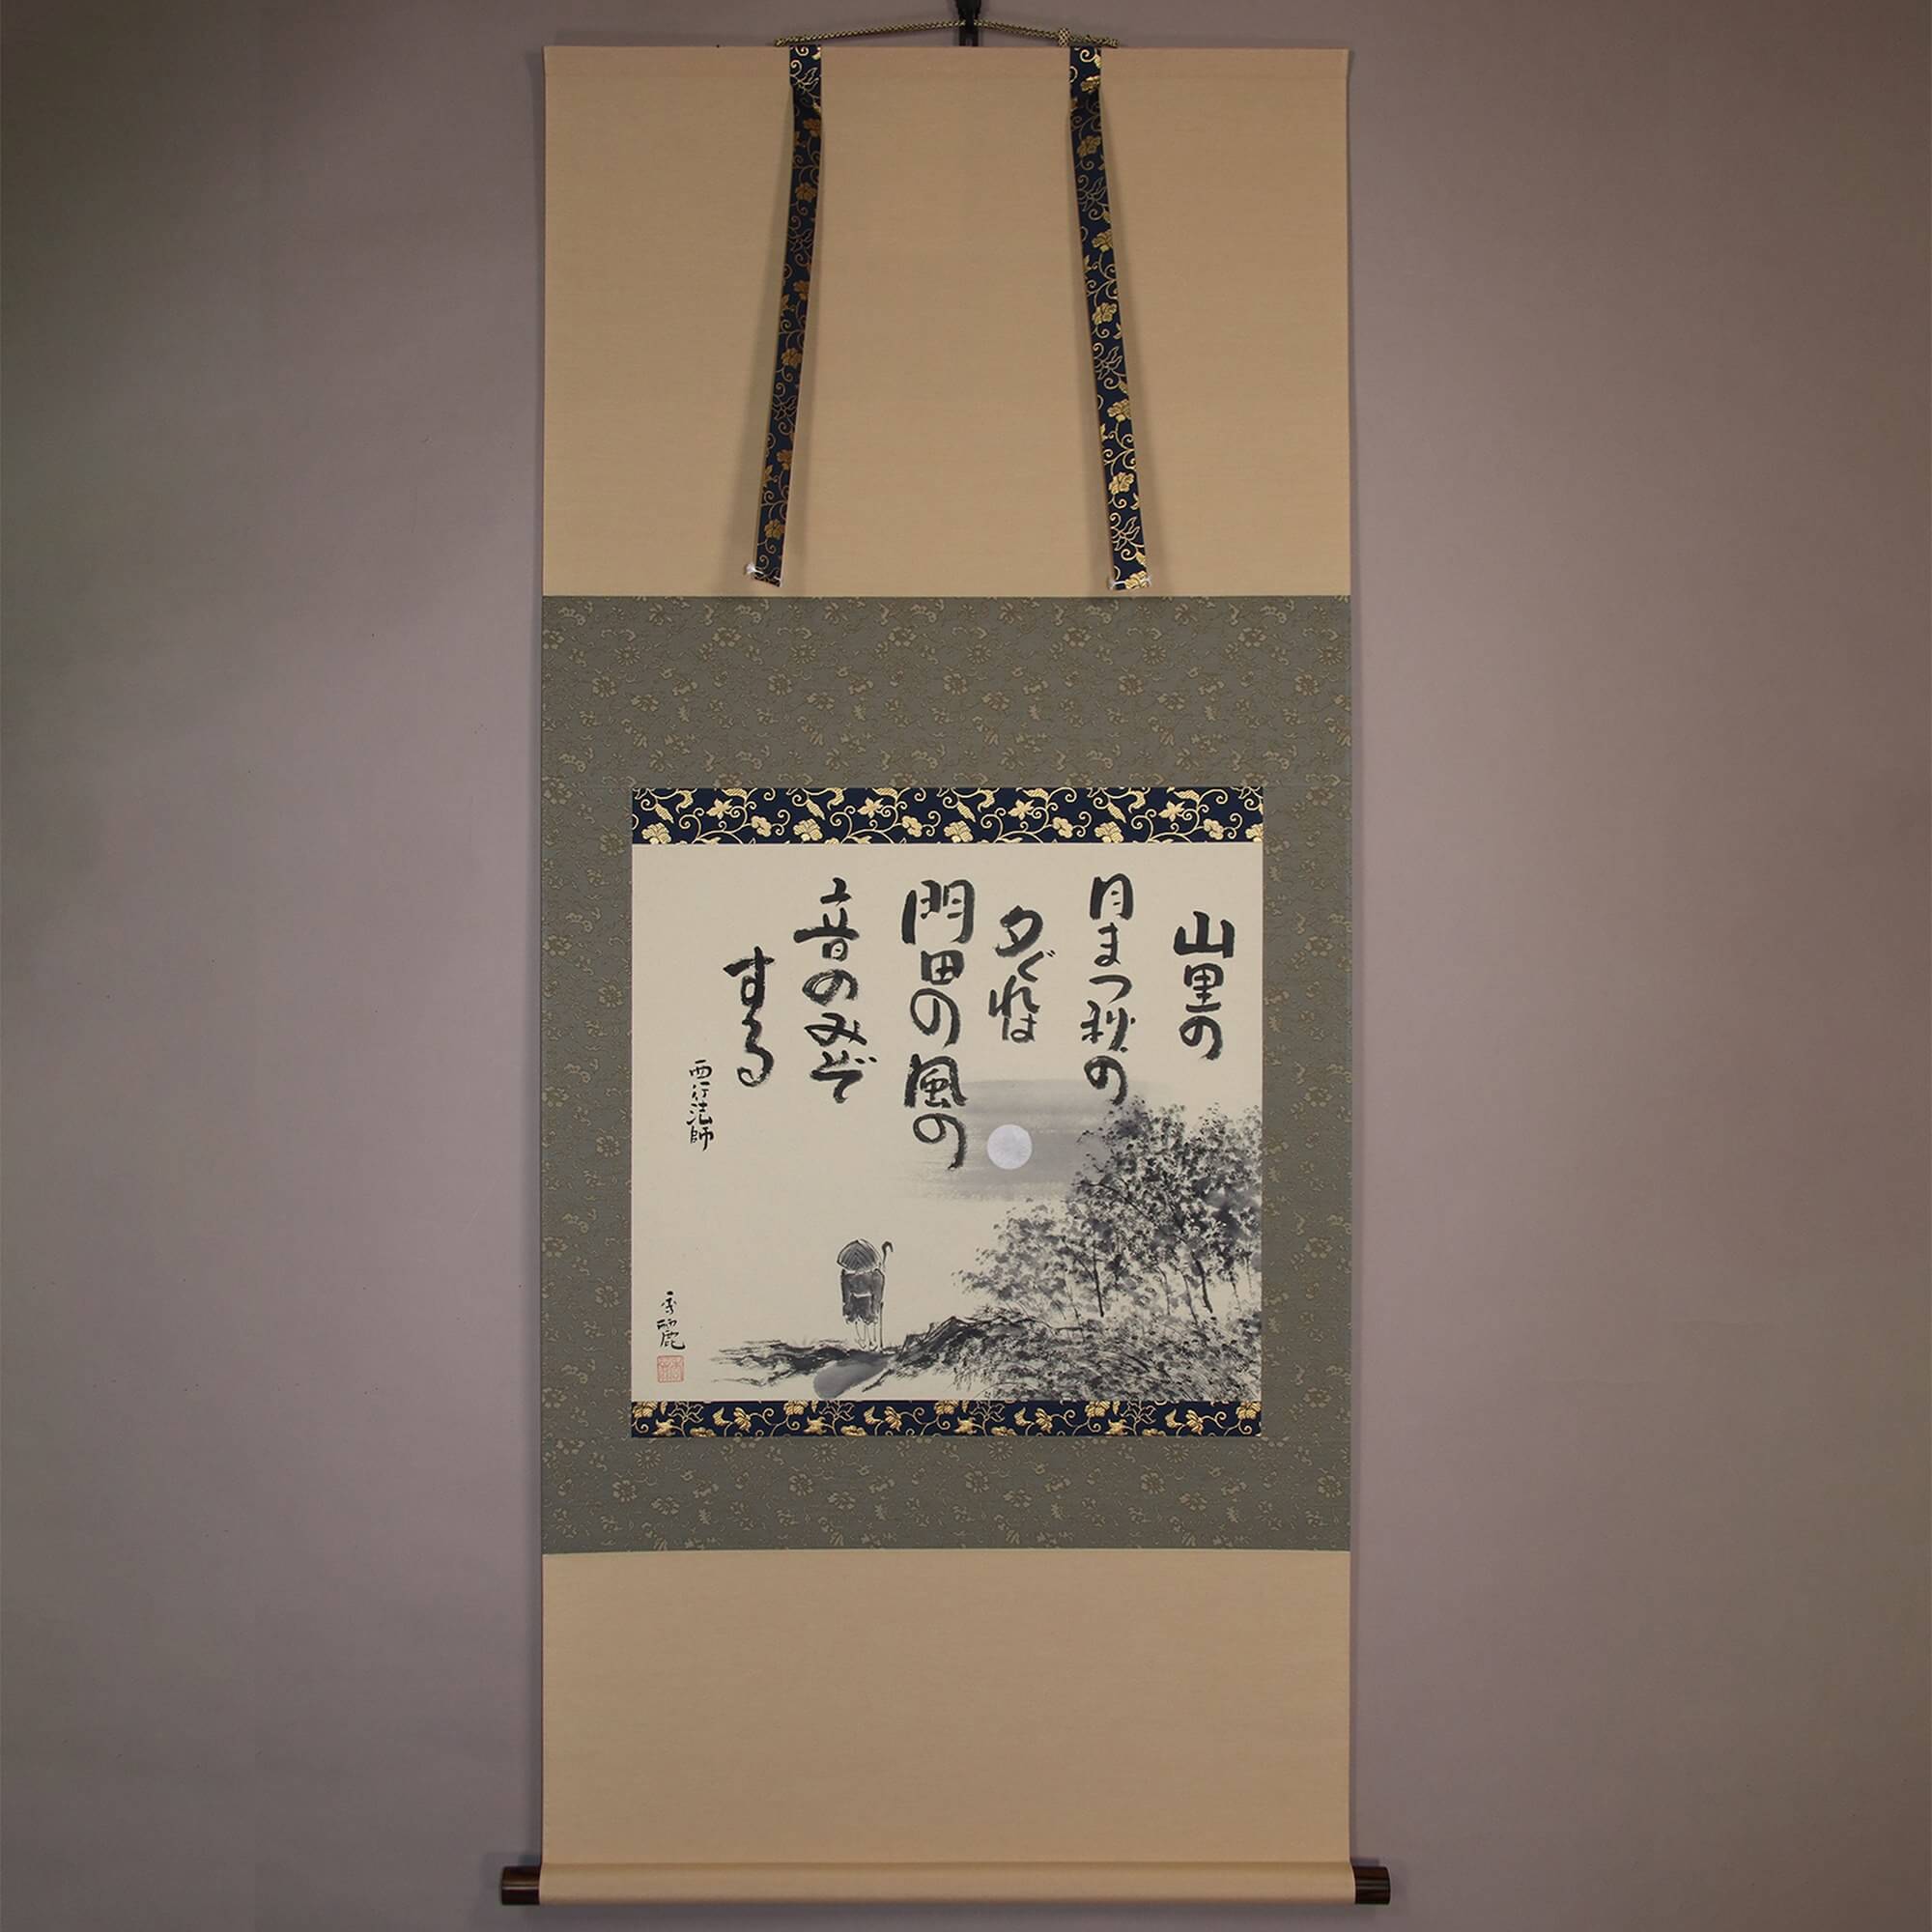 山里の
月まつ秋の
夕ぐれは
門田の風の
音のみぞ
する
西行法師